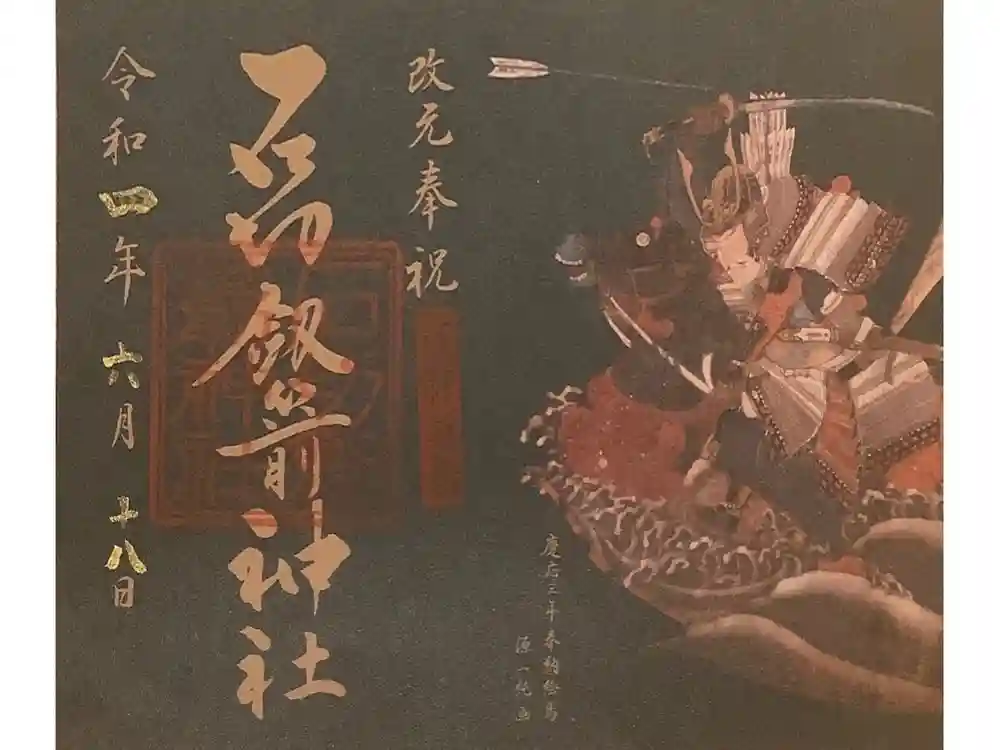 改元奉祝
石切劔箭神社
令和四年六月十八日
慶応三年奉納絵馬
源一純画